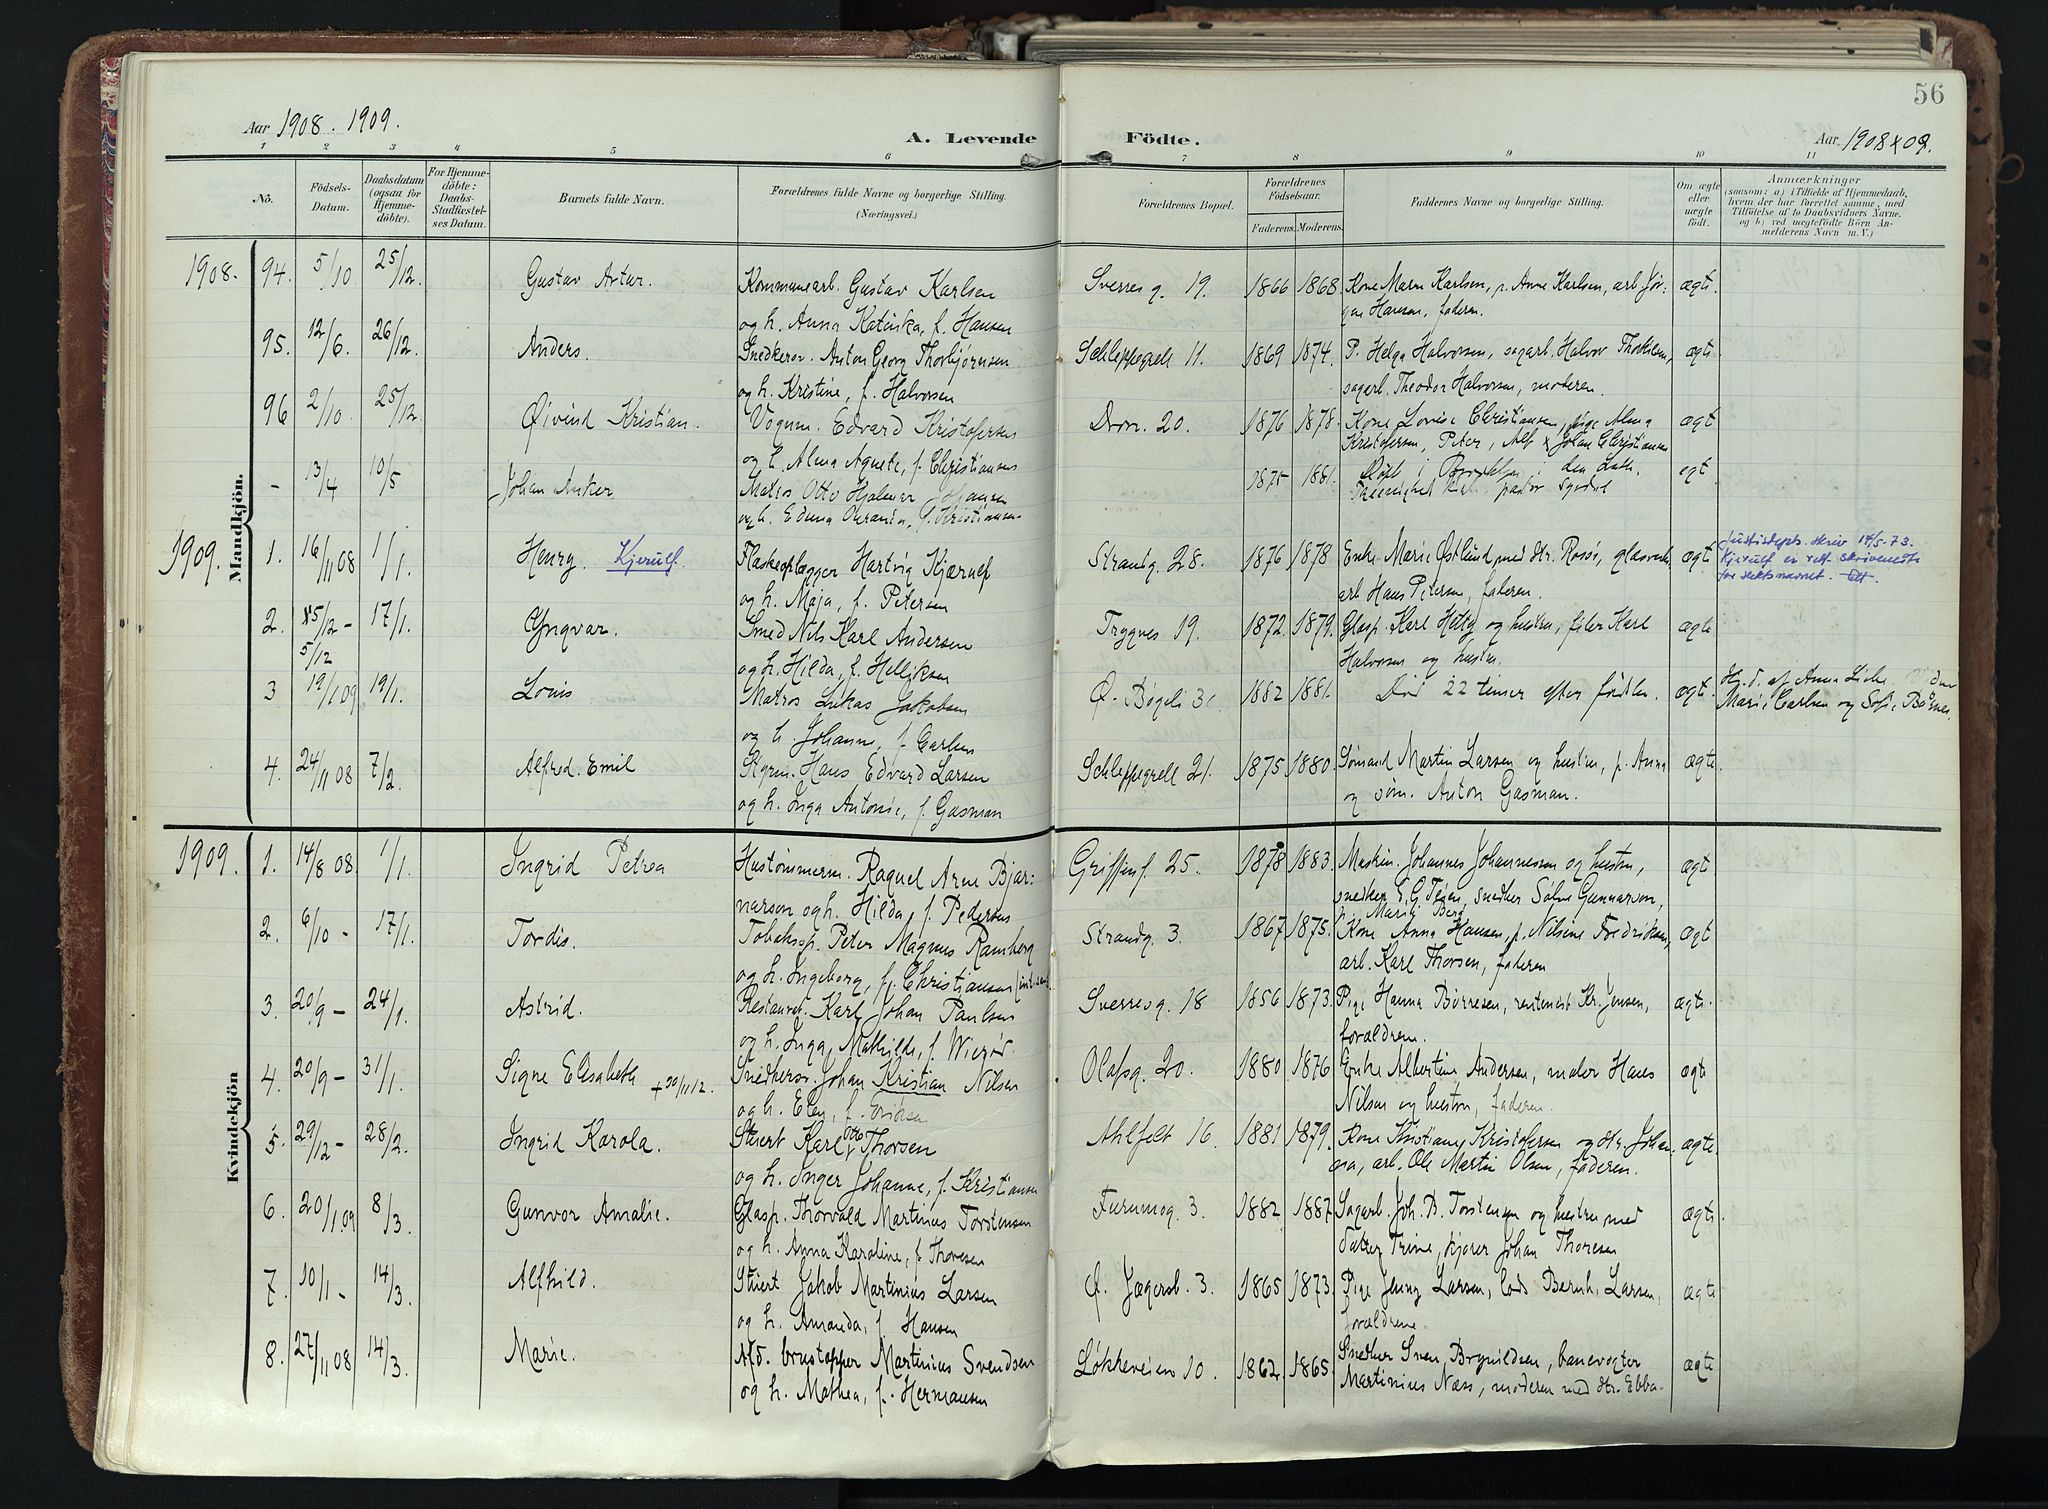 56
Aar 1908. 1909.
A. Levende Födte.
Aar. 1908 & 09.
1 2 3 4 5 6 7 8 9 10 11
No.
Födsels-Datum.
Daabsdatum (ogsaa for Hjemme-döbte).
For Hjemme-döbte: Daabs-Stadfæstel-ses Datum.
Barnets fulde Navn.
Forældrenes fulde Navne og borgerlige Stilling. (Næringsvei.)
Forældrenes Bopæl.
Forældrenes Födselsaar.
Faderens. Moderens.
Faddernes Navne og borgerlige Stilling.
Om ægte eller uægte födt.
Anmærkninger
(saasom: a) i Tilfælde af Hjemmedaab, hvem der har forrettet samme, med Tilföielse af to Daabsvidners Navne. og b) ved uægtefödte Börn An-melderens Navn m. V.)
Mandkjön.
1908. 94. 5/10 25/12. Gustav Artur. Kommunearb. Gustav Karlsen Sverres g. 19. 1866 1868. Kone Maren Karlsen, p. Anne Karlsen, arb. Jør- ægte.
og h. Anna Katinka, f. Hansen gen Hansen, faderen.
95. 12/6. 26/12. Anders. Snedkersv. Anton Georg Thorbjørnsen Schleppegrell 11. 1869 1874. P. Helga Halvorsen, sagarb. Halvor Thorkilsen, ægte
og h. Kristine, f. Halvorsen sagarb. Theodor Halvorsen, moderen
96 2/10. 25/12. Øivind Kristian. Vognm. Edvard Kristofersen Dron. 20. 1876 1878. Kone Lovise Christiansen, pige Alma ægt
og h. Alma Agnete, f. Christiansen Kristofersen, Peter, Alf & Johan Christiansen
- 13/4 10/5 Johan Anker Matros Otto Hjalmar Johansen 1875 1881. Døbt i den Luth. egt
og h. Edina f. Kristiansen
1909. 1. 16/11 08 1/1. Henry. Kjerulf. Flaskeoplægger Hartvig Kjærulf Strandg. 28. 1876 1878 Enke Marie Østlund med dtr. Rossi, glasverks ægte Justisdept. skriv 14/5-73.
og h. Maja, f. Petersen arb Hans Petersen, faderen. Kjerulf er rett skrivemåte for slektsnavnet.
2. 15/12 - 5/12 17/1. Yngvar. Smed Nils Karl Andersen Trygves 19. 1872 1879. Glasp. Karl Hetty og hustru, filer Karl ægte
og h. Hilda, f. Helliksen Halvorsen og hustru.
3 19/1 09 19/1. Louis Matros Lukas Jakobsen Ø. Bøgeli 31 1882 1881. Død 22 timer efter fødslen. ægte. Hj. d. af Anna Lie
og h. Johanne, f. Carlsen Marie Carlsen og Sofie Børnes.
4. 24/11 08 7/2. Alfred Emil Styrm. Hans Edvard Larsen Schleppegrell 21. 1875 1880. Sømand Martin Larsen og hustru, p. Anna ægte.
og h. Inga Antonie, f. Gasman og søm. Anton Gasman.
Kvindekjön
1909. 1. 14/8 08. 1/1. Ingrid Petrea Hustømmerm. Raquel Arne Bjar- Griffenf. 25. 1878 1883. Maskin. Johannes Johannessen og hustru, ægte
narson og h. Hilda, f. Pedersen snedker E. G. Teien, snedker Sølve Gunnarson,
p. Marit Berg
2. 6/10 - 17/1. Tordis. Tobaksp. Peter Magnus Ramberg Strandg. 3. 1867 1875. Kone Anna Hansen, p. Nilsine Fredriksen, ægte
og h. Ingeborg, f. Christiansen arb. Karl Thorsen, faderen
3. 20/9 - 24/1. Astrid. Restaurat. Karl Johan Paulsen Sverresg. 18 1856 1873. Pige Hanna Børresen, rentenist Kr. Jensen, ægte.
og h. Inga Mathilde, f. Wiegør. forældrene.
4. 20/9 - 31/1. Signe Elisabeth + 30/11 12. Snedkersv. Johan Kristian Nilsen Olafsg. 20. 1880 1876 Enke Albertine Andersen, maler Hans ægte
og h. Elen, f. Eriksen Nilsen og hustru, faderen.
5. 29/12 - 28/2. Ingrid Karola. Stuert Karl Otto Thorsen Ahlfelt 16. 1881 1879. Kone Kristiane Kristofersen og dtr. Johan- ægte.
og h. Inger Johanne, f. Kristiansen na, arb. Ole Martin Olsen, faderen.
6. 20/1 09 8/3. Gunvor Amalie. Glasp. Thorvald Martinius Torstensen Furumog. 3. 1882 1887 Sagarb. Joh. B. Torstensen og hustru med ægte.
og h. Anna Karoline, f. Thoresen datter Trine, kjører Johan Thoresen
7. 10/1 - 14/3. Alfhild. Stuert Jakob Martinius Larsen Ø. Jægersb. 3. 1865 1873. Pige Jenny Larsen, lods Bernh. Larsen, ægte
og h. Amanda, f. Hansen forældrene.
8. 27/11 08 14/3. Marie. Afd. brustapper Martinius Svendsen Løkkeveien 10. 1862. 1865. Snedker Sven Brynildsen, banevogter ægte
og h. Mathea, f. Hermansen Martinius Næss, moderen med dtr. Ebba.